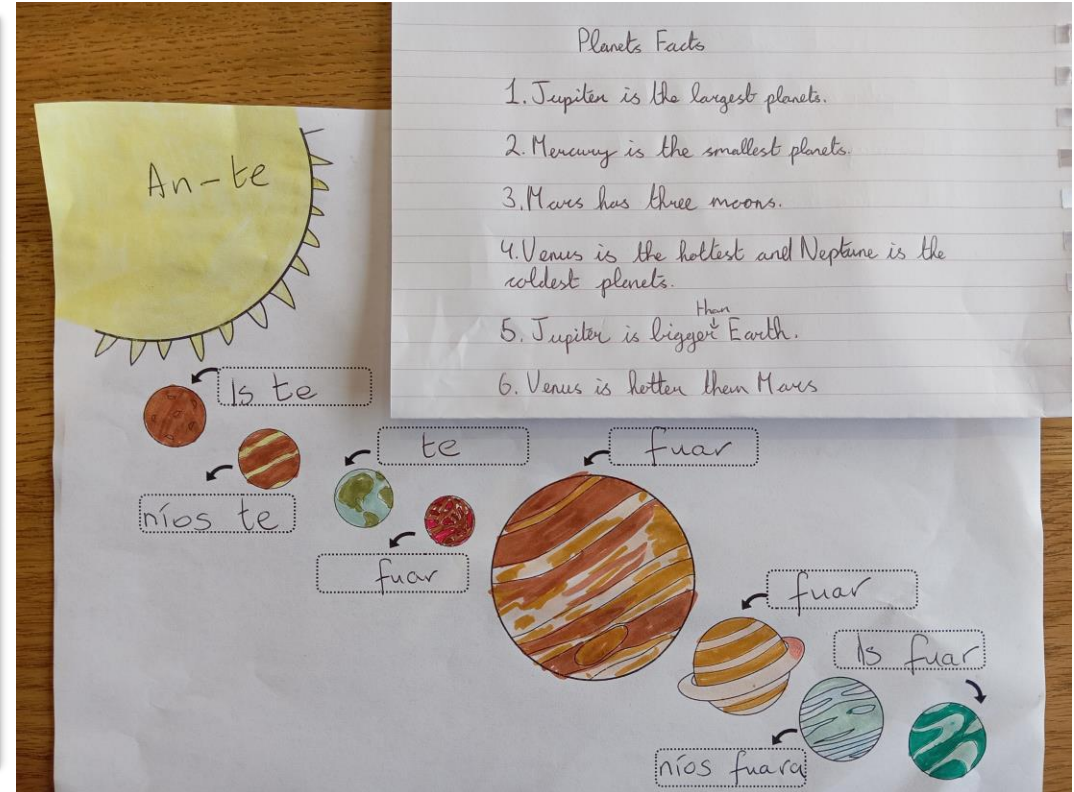 Planets Facts
1. Jupiter is the largest planets.
2. Mercury is the smallest planets.
3. Mars has three moons.
4. Venus is the hottest and Neptune is the
coldest planets.
than
5. Jupiter is bigger Earth.
6. Venus is hotter than Mars
An-te
Is te
níos te
te
fuar
fuar
fuar
Is fuar
níos fuara